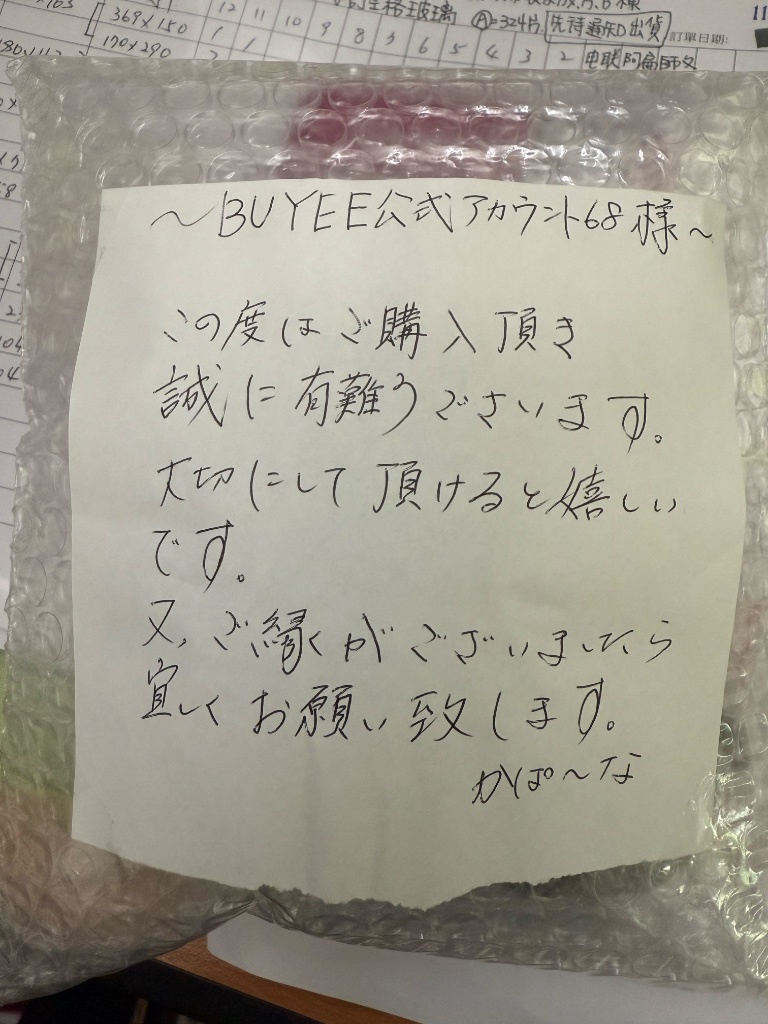 369×150
170×290
12 11 10 9 8 7 6 5 4 3 2
Ⓐ=324片
先待通知出貨
訂單日期:
11
～BUYEE公式アカウント68様～
この度はご購入頂き
誠に有難うございます。
大切にして頂けると嬉しい
です。
又、ご縁くがございましたら
宜しくお願い致します。
かぱ～な